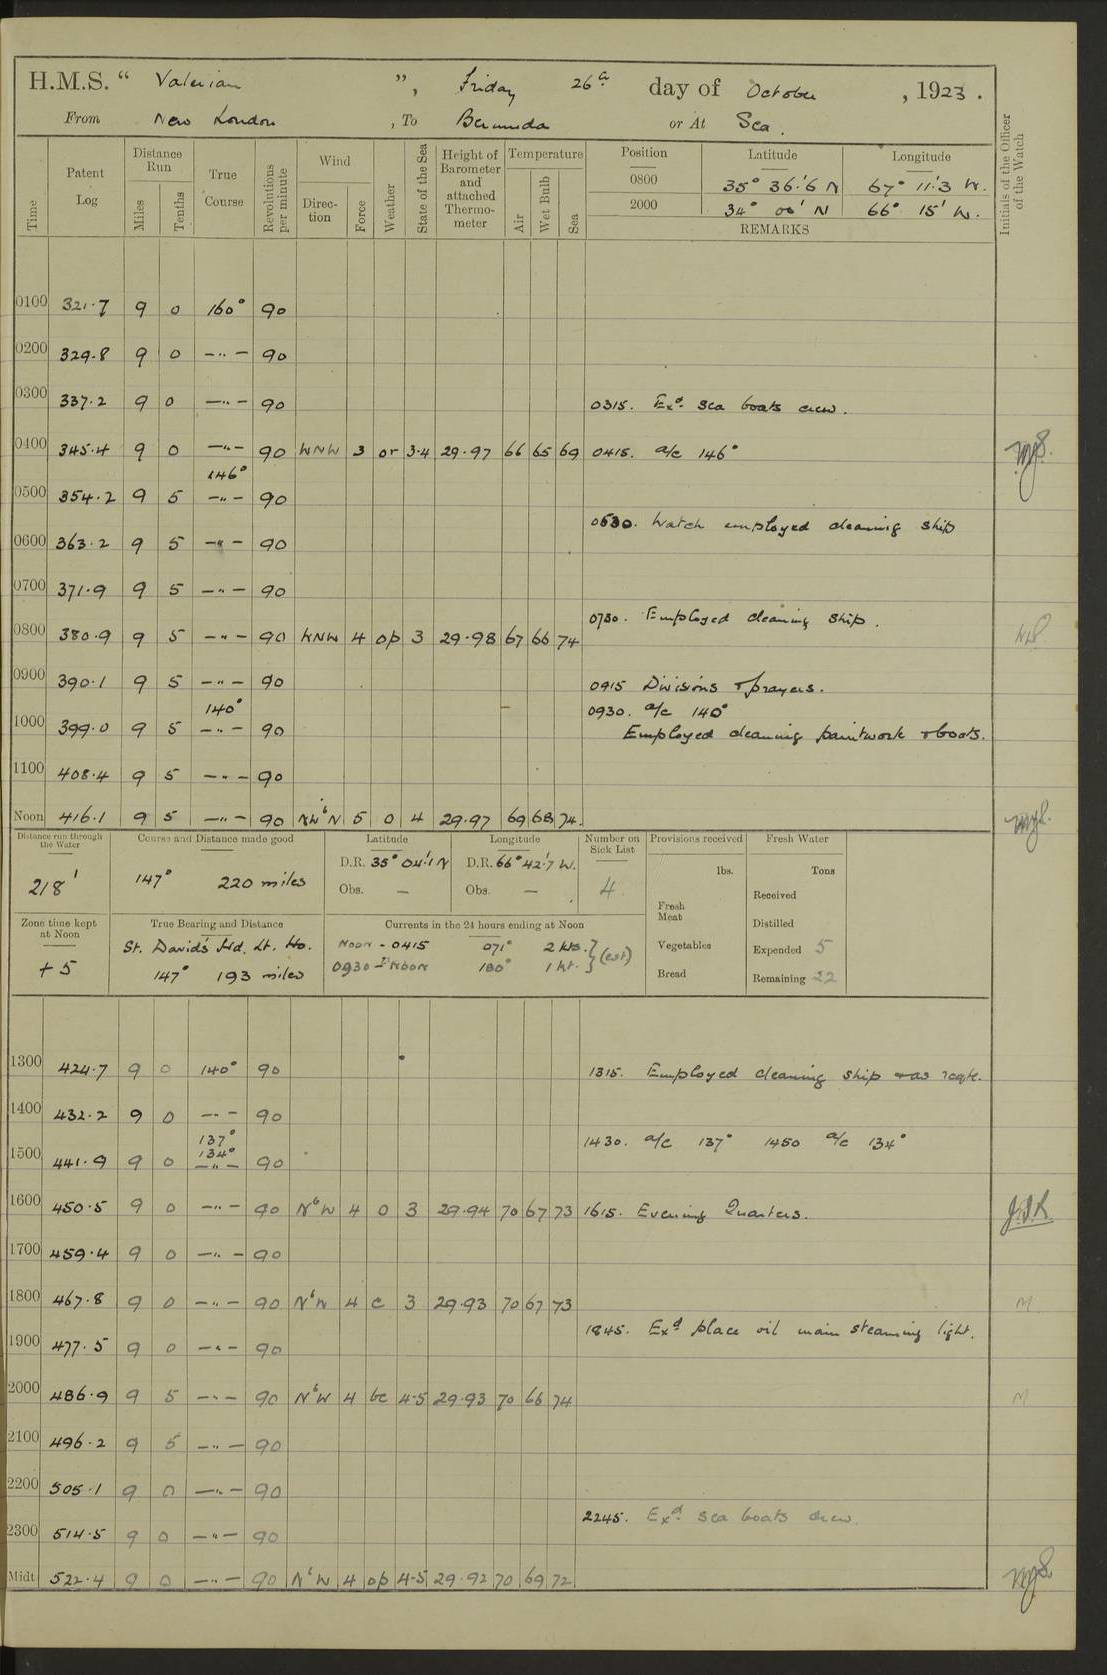 H.M.S. " Valerian ", Friday 26th day of October, 1923.
From New London, To Bermuda or At Sea.
Time
Patent Log
Distance Run
Miles
Tenths
True Course
Revolutions per minute
Wind
Direction
Force
Weather
State of the Sea
Height of Barometer and attached Thermometer
Temperature
Air
Wet Bulb
Sea
Position Latitude Longitude
0800 35° 36'.6 N 67° 11'.3 W.
2000 34° 00' N 66° 15' W.
REMARKS
Initials of the Officer of the Watch
0100 321.7 9 0 160° 90
0200 329.8 9 0 —"— 90
0300 337.2 9 0 —"— 90 0315. Exd. sea boats crew.
0400 345.4 9 0 —"— 90 WNW 3 or 3.4 29.97 66 65 69 0415. a/c 146°
146°
0500 354.2 9 5 —"— 90
0530. Watch employed cleaning ship
0600 363.2 9 5 —"— 90
0700 371.9 9 5 —"— 90
0730. Employed cleaning ship.
0800 380.9 9 5 —"— 90 WNW 4 op 3 29.98 67 66 74
0900 390.1 9 5 —"— 90 0915 Divisions & prayers.
140° 0930. a/c 140°
1000 399.0 9 5 —"— 90 Employed cleaning paintwork & boats.
1100 408.4 9 5 —"— 90
Noon 416.1 9 5 —"— 90 NWbN 5 o 4 29.97 69 68 74.
Distance run through the Water
218'
Course and Distance made good
147° 220 miles
Latitude
D.R. 35° 04'.1 N
Obs. —
Longitude
D.R. 66° 42'.7 W.
Obs. —
Number on Sick List
4
Provisions received
lbs.
Fresh Meat
Vegetables
Bread
Fresh Water
Tons
Received
Distilled
Expended 5
Remaining 22
Zone time kept at Noon
+5
True Bearing and Distance
St. David's Hd. Lt. Ho.
147° 193 miles
Currents in the 24 hours ending at Noon
Noon - 0415 071° 2 kts. } (est)
0930 - Noon 180° 1 kt. }
1300 424.7 9 0 140° 90 1315. Employed cleaning ship & as reqte.
1400 432.2 9 0 —"— 90
137° 1430. a/c 137° 1450 a/c 134°
134°
1500 441.9 9 0 —"— 90
1600 450.5 9 0 —"— 90 NbW 4 o 3 29.94 70 67 73 1615. Evening Quarters.
1700 459.4 9 0 —"— 90
1800 467.8 9 0 —"— 90 NbW 4 c 3 29.93 70 67 73 M
1845. Exd place oil main steaming light.
1900 477.5 9 0 —"— 90
2000 486.9 9 5 —"— 90 NbW 4 bc 4-5 29.93 70 66 74 M
2100 496.2 9 5 —"— 90
2200 505.1 9 0 —"— 90
2245. Exd. sea boats crew.
2300 514.5 9 0 —"— 90
Midt. 522.4 9 0 —"— 90 NbW 4 op 4-5 29.92 70 69 72